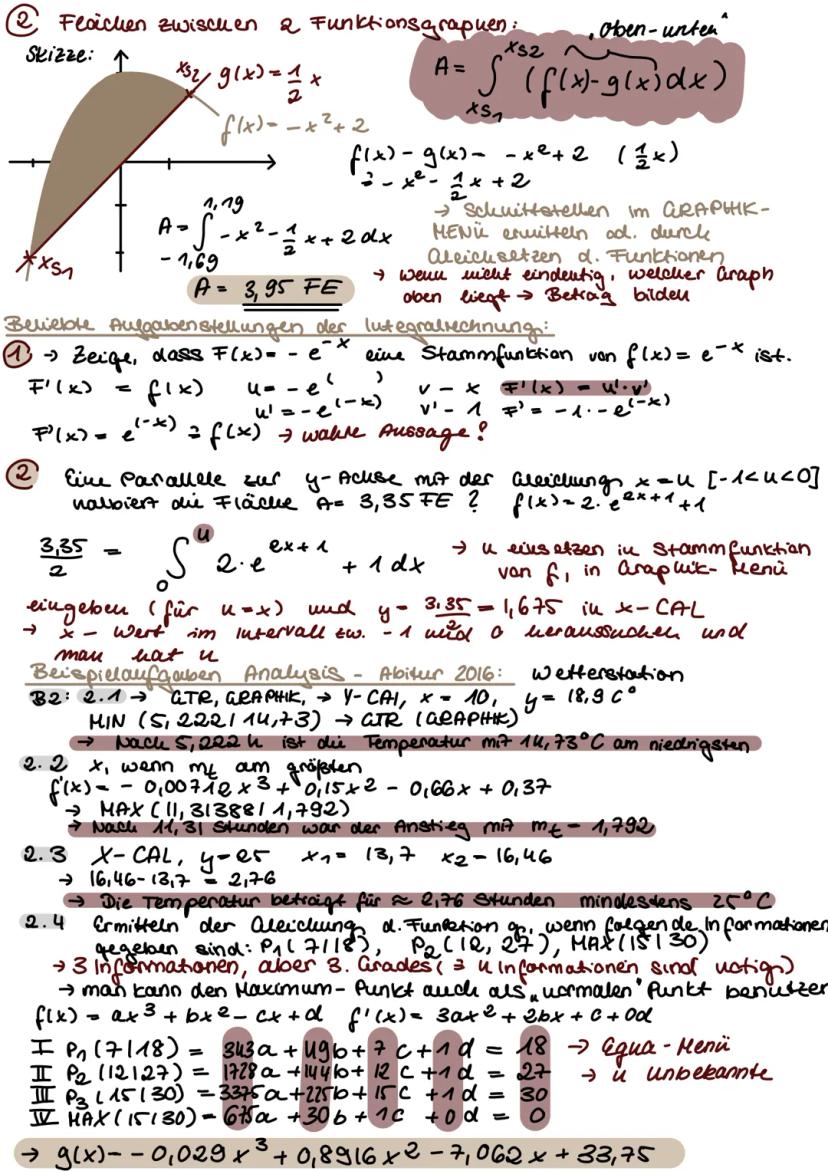 ② Flächen zwischen 2 Funktionsgraphen:
Skizze:
xs2
g(x) = 1/2 x
f(x) = -x² + 2
xs1
„oben-unten"
A = ∫ xs1 xs2 (f(x)-g(x)dx)
f(x) - g(x) = -x² + 2 (1/2 x)
= -x² - 1/2 x + 2
A = ∫ -1,69 1,19 -x² - 1/2 x + 2 dx
A = 3,95 FE
→ Schnittstellen im GRAPHIK-
MENÜ ermitteln od. durch
Gleichsetzen d. Funktionen
→ wenn nicht eindeutig, welcher Graph
oben liegt → Betrag bilden
Beliebte Aufgabenstellungen der Integralrechnung:
① → Zeige, dass F(x) = -e^-x eine Stammfunktion von f(x) = e^-x ist.
F'(x) = f(x) u = -e^( ) v - x F'(x) = u'·v'
u' = -e^(-x) v' - 1 F' = -1 · -e^(-x)
F'(x) = e^(-x) = f(x) → wahre Aussage!
② Eine Parallele zur y-Achse mit der Gleichung x = u [-1<u<0]
halbiert die Fläche A = 3,35 FE ? f(x) = 2·e^2x+1 + 1
3,35/2 = ∫ 0 u 2·e^2x+1 + 1 dx
→ u einsetzen in Stammfunktion
von f, in Graphik-Menü
eingeben (für u=x) und y = 3,35/2 = 1,675 in x-CAL
→ x - Wert im Intervall zw. -1 und 0 heraussuchen und
man hat u
Beispielaufgaben Analysis - Abitur 2016: Wetterstation
B2: 2.1 → GTR, GRAPHIK, → Y-CAL, x = 10, y = 18,9 C°
MIN (5,222 | 14,73) → GTR (GRAPHIK)
→ Nach 5,222 h ist die Temperatur mit 14,73°C am niedrigsten
2.2 x, wenn mt am größten
f'(x) = -0,00712x³ + 0,15x² - 0,66x + 0,37
→ MAX (11,31388 / 1,792)
→ Nach 11,31 Stunden war der Anstieg mit mt = 1,792
2.3 X-CAL, y=25 x1 = 13,7 x2 = 16,46
→ 16,46-13,7 = 2,76
→ Die Temperatur beträgt für ≈ 2,76 Stunden mindestens 25°C
2.4 Ermitteln der Gleichung d. Funktion g, wenn folgende Informationen
gegeben sind: P1(7|18), P2(12,27), MAX(15|30)
→ 3 Informationen, aber 3. Grades (≙ 4 Informationen sind nötig)
→ man kann den Maximum-Punkt auch als „normalen" Punkt benutzen
f(x) = ax³ + bx² - cx + d f'(x) = 3ax² + 2bx + c + 0d
I P1 (7|18) = 343a + 49b + 7c + 1d = 18 → Equa-Menü
II P2 (12|27) = 1728a + 144b + 12c + 1d = 27 → 4 Unbekannte
III P3 (15|30) = 3375a + 225b + 15c + 1d = 30
IV MAX (15|30) = 675a + 30b + 1c + 0d = 0
→ g(x) - -0,029x³ + 0,8916x² - 7,062x + 33,75